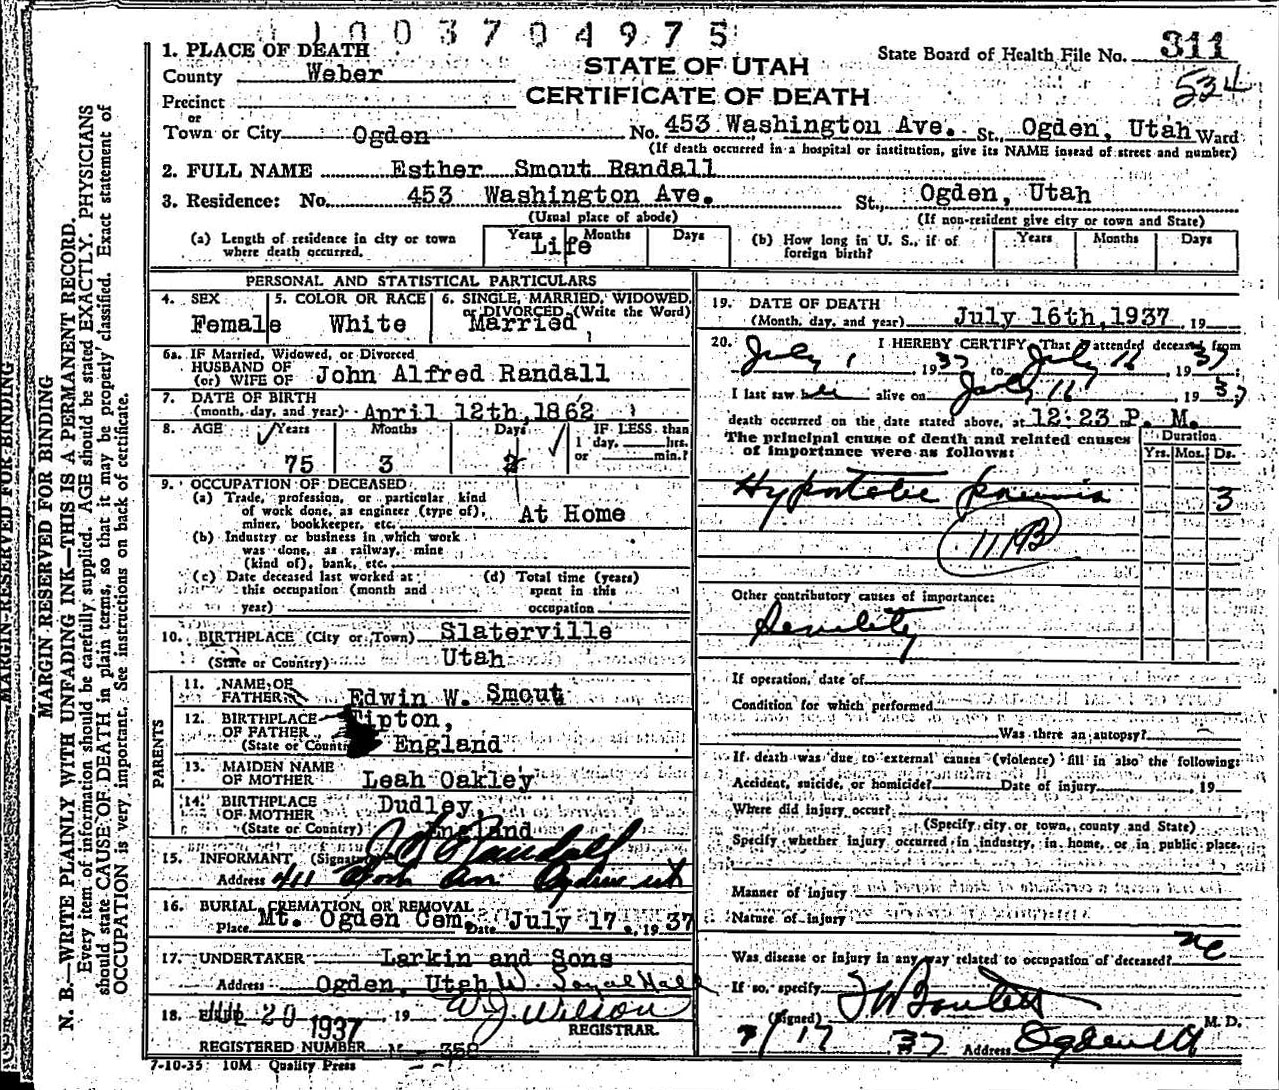 1003704975
1. PLACE OF DEATH
County Weber
STATE OF UTAH
State Board of Health File No. 311
534
Precinct
CERTIFICATE OF DEATH
or
Town or City Ogden No. 453 Washington Ave. St., Ogden, Utah Ward
(If death occurred in a hospital or institution, give its NAME instead of street and number)
2. FULL NAME Esther Smout Randall
3. Residence: No. 453 Washington Ave. St., Ogden, Utah
(Usual place of abode) (If non-resident give city or town and State)
(a) Length of residence in city or town where death occurred. Years Months Days
Life
(b) How long in U. S., if of foreign birth? Years Months Days
PERSONAL AND STATISTICAL PARTICULARS
4. SEX
Female
5. COLOR OR RACE
White
6. SINGLE, MARRIED, WIDOWED,
or DIVORCED (Write the Word)
Married
6a. IF Married, Widowed, or Divorced
HUSBAND OF
(or) WIFE OF John Alfred Randall
7. DATE OF BIRTH
(month, day, and year) April 12th, 1862
8. AGE Years Months Days IF LESS than
1 day, hrs.
or min.?
75 3
9. OCCUPATION OF DECEASED
(a) Trade, profession, or particular kind
of work done, as engineer (type of),
miner, bookkeeper, etc. At Home
(b) Industry or business in which work
was done, as railway, mine
(kind of), bank, etc.
(c) Date deceased last worked at
this occupation (month and
year)
(d) Total time (years)
spent in this
occupation
10. BIRTHPLACE (City or Town) Slaterville
(State or Country) Utah
PARENTS
11. NAME OF
FATHER Edwin W. Smout
12. BIRTHPLACE
OF FATHER
(State or Country)
Tipton,
England
13. MAIDEN NAME
OF MOTHER Leah Oakley
14. BIRTHPLACE
OF MOTHER
(State or Country)
Dudley,
England
15. INFORMANT (Signature) Randall
Address 411 Ogden Ut
16. BURIAL, CREMATION, OR REMOVAL
Place Mt. Ogden Cem. Date July 17, 1937
17. UNDERTAKER Larkin and Sons
Address Ogden, Utah
18. FILED JUL 20 1937, 19 W J Wilson
REGISTRAR.
REGISTERED NUMBER 358
7-10-35 10M Quality Press
19. DATE OF DEATH
(Month, day, and year) July 16th, 1937, 19
20. I HEREBY CERTIFY, That I attended deceased from
July 1, 1937 to July 16, 1937
I last saw her alive on July 16, 1937
death occurred on the date stated above, at 12:23 P. M.
The principal cause of death and related causes
of importance were as follows:
Duration
Yrs. Mos. Ds.
Hypostatic pneumonia 3
Other contributory causes of importance:
Senility
If operation, date of
Condition for which performed
Was there an autopsy?
If death was due to external causes (violence) fill in also the following:
Accident, suicide, or homicide? Date of injury 19
Where did injury occur?
(Specify city or town, county and State)
Specify whether injury occurred in industry, in home, or in public place.
Manner of injury
Nature of injury
Was disease or injury in any way related to occupation of deceased? no
If so, specify
(Signed) M. D.
7/17 37 Address Ogden Ut
MARGIN RESERVED FOR BINDING
MARGIN RESERVED FOR BINDING
N. B.—WRITE PLAINLY WITH UNFADING INK—THIS IS A PERMANENT RECORD.
Every item of information should be carefully supplied. AGE should be stated EXACTLY. PHYSICIANS
should state CAUSE OF DEATH in plain terms, so that it may be properly classified. Exact statement of
OCCUPATION is very important. See instructions on back of certificate.